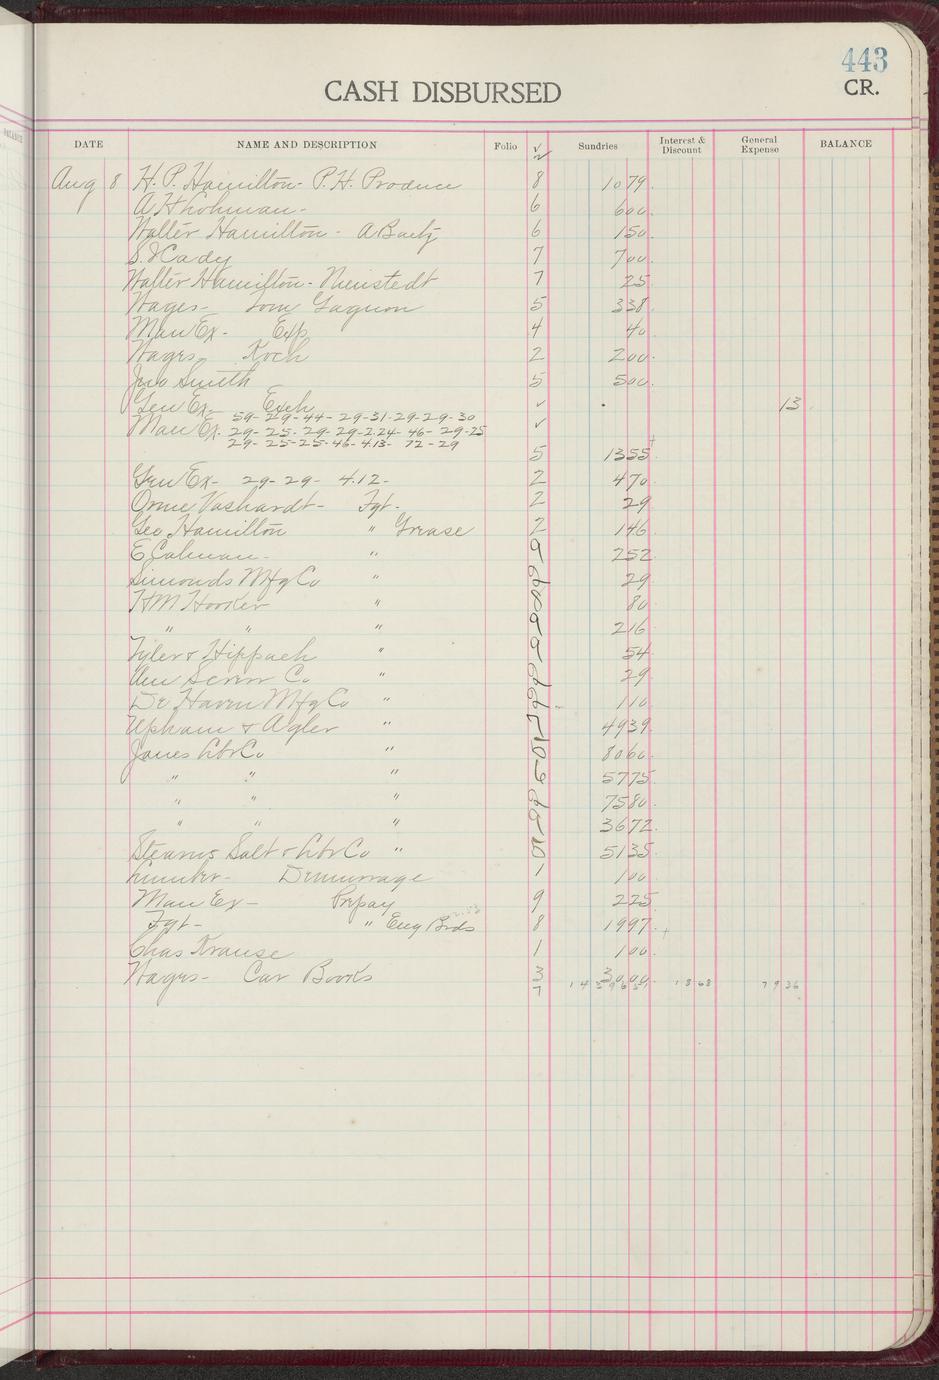 443
CASH DISBURSED CR.
DATE NAME AND DESCRIPTION Folio √ Sundries Interest & Discount General Expense BALANCE
Aug 8 H. P. Hamilton - P. H. Produce 8 1079
A H Lohman - 6 600
Walter Hamilton - A Baetz 6 150
S. I Cady 7 700
Walter Hamilton - Nienstedt 7 25
Wages - Tom Gagnon 5 338
Man Ex - Exp 4 40
Wages - Koch 2 200
Jno Smith 5 500
Gen Ex - Exch √ 13
Man Ex. 59-29-44-29-31-29-29-30 √
29-25-29-29-2.24-46-29-25
29-25-25-46-4.13-72-29
5 1355
Gen Ex - 29-29-4.12- 2 470
Orme Vashardt - Fgt. 2 29
Geo Hamilton " Grease 2 146
E Calman - " 252
Simonds Mfg Co " 29
H M Hooker " 80
" " " 216
Tyler & Hippach " 54
Am Screw Co " 29
De Haven Mfg Co " 110
Upham & Agler " 4939
Jones Lbr Co " 8060
" " " 5775
" " " 7580
" " " 3672
Stearns Salt & Lbr Co " 10 5135
Lumber - Demurrage 1 100
Man Ex - Prepay 9 225
Fgt - " Eng Brds 8 1997
Chas Krause 1 100
Wages - Car Books 3 3000
7 1459651 1868 7936